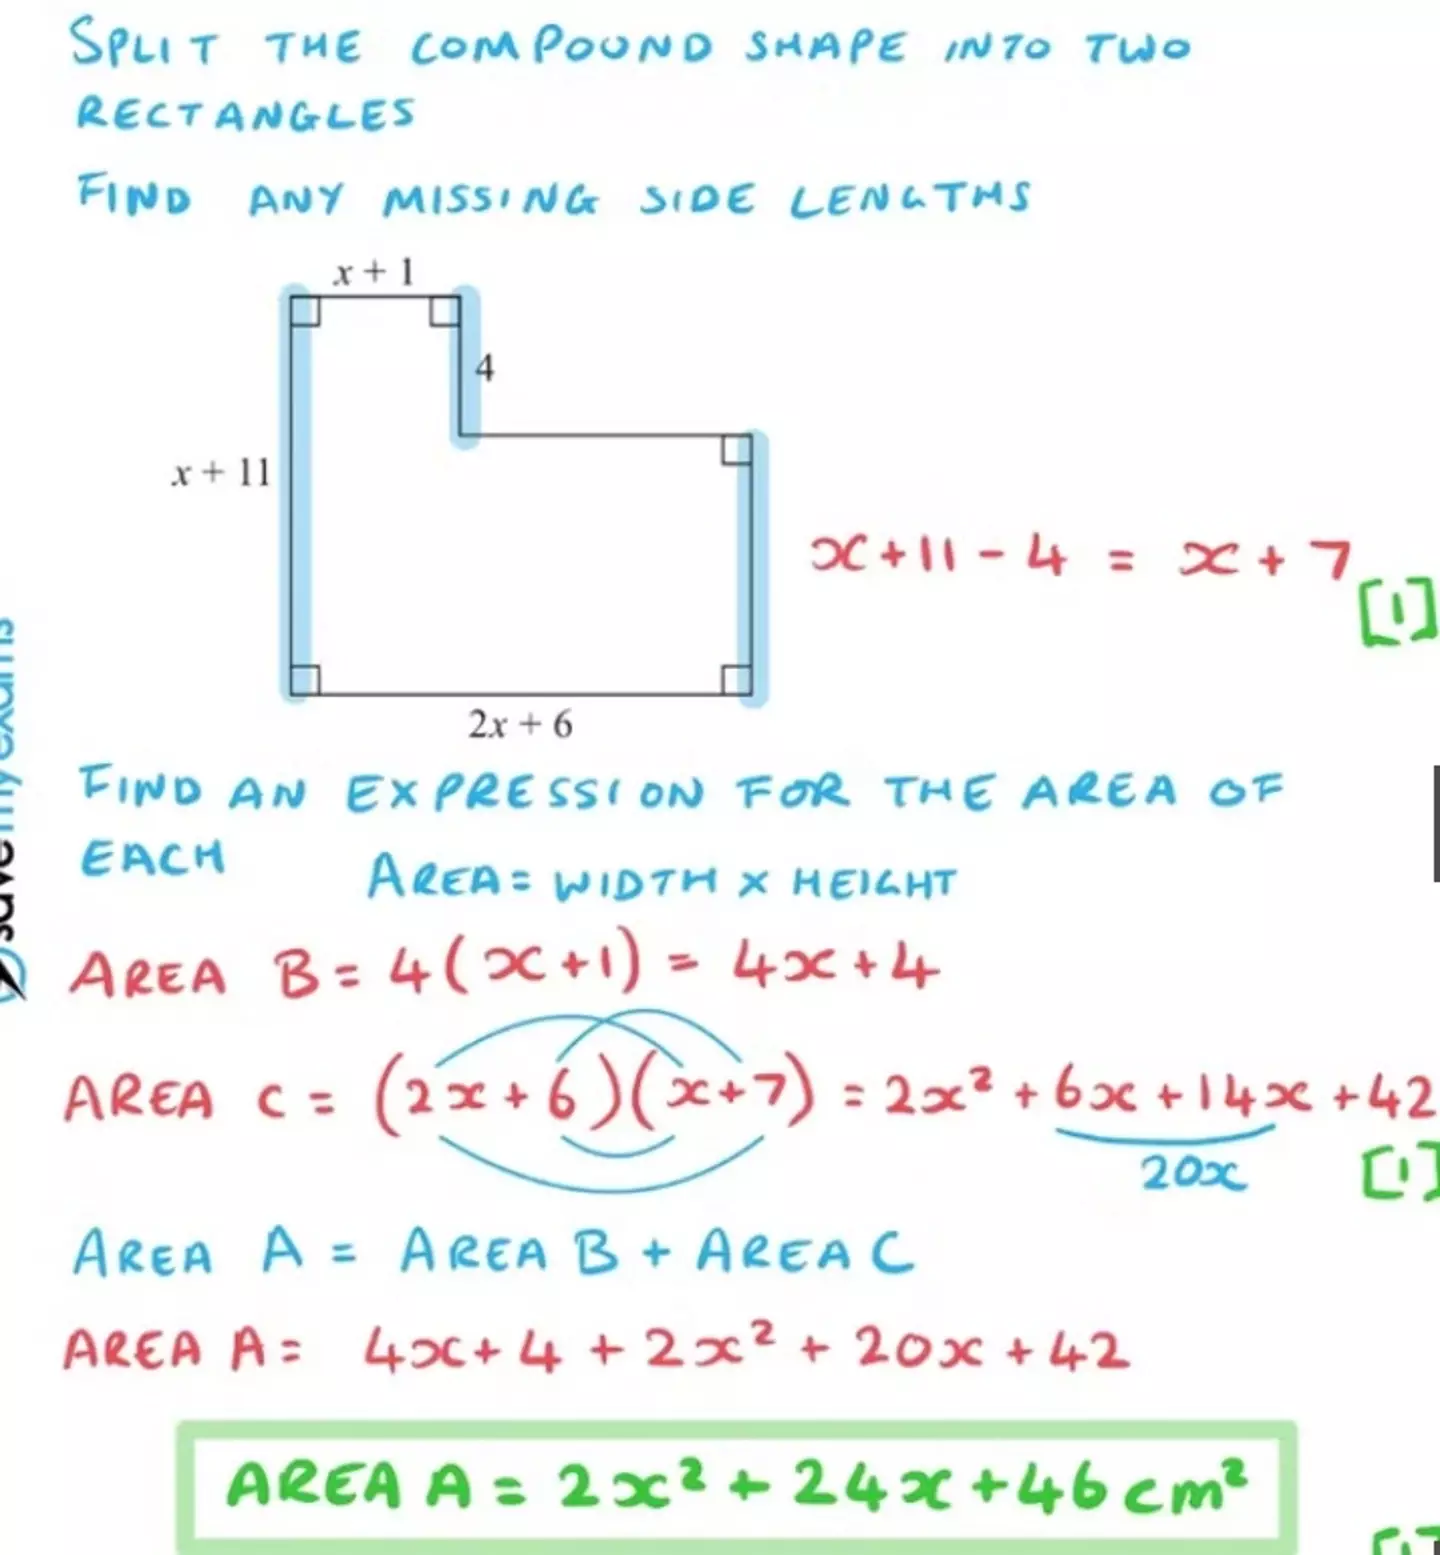 SPLIT THE COMPOUND SHAPE INTO TWO
RECTANGLES
FIND ANY MISSING SIDE LENGTHS
x + 1
4
x + 11
x+11-4 = x+7
[1]
2x + 6
FIND AN EXPRESSION FOR THE AREA OF
EACH AREA = WIDTH x HEIGHT
AREA B = 4(x+1) = 4x+4
AREA C = (2x+6)(x+7) = 2x² + 6x + 14x + 42
20x
[1]
AREA A = AREA B + AREA C
AREA A = 4x+4 + 2x² + 20x + 42
AREA A = 2x² + 24x + 46 cm²
savemyexams